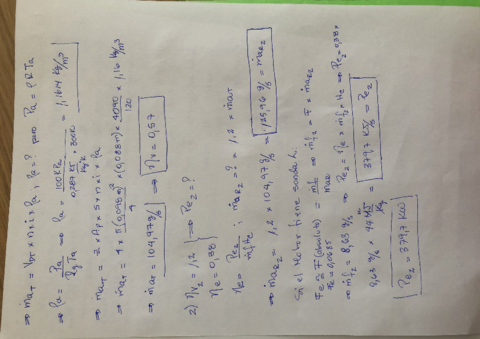 ⇒ ṁaT = VDT × n × i × ρa ; ρa? pero Pa = ρRTa
⇒ ρa = Pa / RgTa ⇒ ρa = 100KPa / 0,287 KJ/KgK × 300K = 1,1614 Kg/m³
⇒ ṁaT = 2 × Ap × S × n × i × ρa
⇒ ṁaT = 4 × π(0,098m)² / 4 × (0,088m) × 4040 / 120 × 1,16 Kg/m³
⇒ ṁaT = 104,97 g/s ⇒ ηv = 0,57
2) ηv2 = 1,2
ηe = 0,38 } ⇒ Pe2 = ?
ηe = Pe2 / ṁf Hc ; ṁaR2 = ? = 1,2 × ṁaT
⇒ ṁaR2 = 1,2 × 104,97 g/s = 125,96 g/s = ṁaR2
Si el Motor tiene
Fe = F (absoluto) = ṁf / ṁaR ⇒ ṁf2 = F × ṁaR2
Fe = 0,0685
⇒ ṁf2 = 8,63 g/s ⇒ Pe2 = ηe × ṁf2 × Hc ⇒ Pe2 = 0,38 ×
8,63 g/s × 44 MJ/Kg = 379,7 KJ/s = Pe2
Pe2 = 379,7 KW